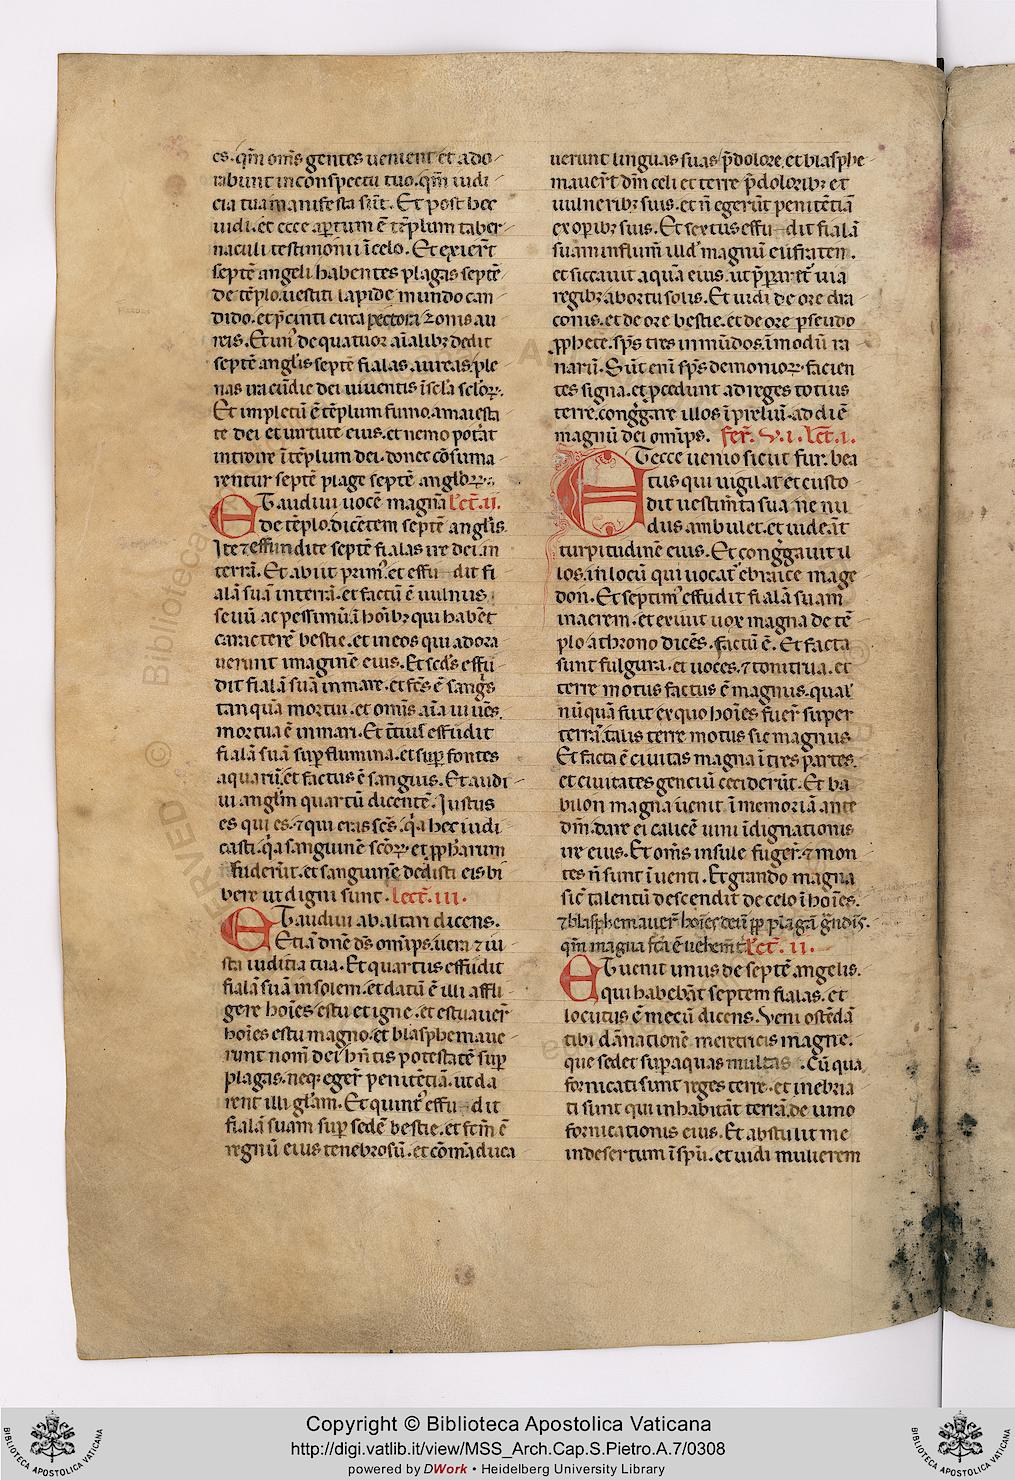 es. qm̄ om̄s gentes uenient et ado
rabunt in conspectu tuo. qm̄ iudi
cia tua manifesta sūt. Et post hec
uidi. et ecce aꝑtum ē tēplum taber
naculi testimonii ī celo. Et exierūt
septē angeli habentes plagas septē
de tēplo. uesti lapide mundo can
dido. et p̄cinti circa pectora zonis au
reis. Et un᷒ de quatuor aīalibꝫ dedit
septē anglis septē fialas aureas. ple
nas ira cūdie dei uiuentis ī scl̄a scl̄oꝝ.
Et impletū ē tēplum fumo. a maiesta
te dei et uirtute eius. et nemo pot̄at
introire ī tēplum dei. donec cōsuma
rentur septē plage septē angl̄oꝝ.
Et audiui uocē magnā lect̄. ii.
de tēplo. dicētem septē anglis.
Ite ⁊ effundite septē fialas ire dei. in
terrā. Et abiit prim᷒. et effu dit fi
alā suā in terrā. et factū ē uulnus
seuū ac pessimū. ī hoībꝫ qui habēt
caracterē bestie. et in eos qui adora
uerunt imaginē eius. Et scd̄s effu
dit fialā suā in mare. et fc̄s ē sangs
tanquā mortui. et omīs aīa uiuēs.
mortua ē in mari. Et t̄tius effudit
fialā suā suꝑ flumina. et suꝑ fontes
aquarū. et factus ē sanguis. Et audi
ui anglm̄ quartū dicentē. Iustus
es qui es. ⁊ qui eras sc̄s. q̄a hec iudi
casti. q̄a sanguinē sc̄oꝝ. et ꝓph̄arum
fuderūt. et sanguinē dedisti eis bi
bere ut digni sunt. lect̄. iii.
Et audiui ab altari dicens.
Etiā dn̄e ds̄ om̄ips. uera ⁊ iu
sta iuditia tua. Et quartus effudit
fialā suā in solem. et datū ē illi affli
gere hoīes estu et igne. et estuauer̄
hoīes estu magno. et blasphemaue
runt nom̄ dei hn̄tis potestatē suꝑ
plagas. neqꝫ eger̄ penitētiā. ut da
rent illi gl̄am. Et quint᷒ effu dit
fialā suam suꝑ sedē bestie. et fcm̄ ē
regnū eius tenebrosū. et cōmāduca
uerunt linguas suas p̄ dolore. et blasphe
mauer̄t dm̄ celi et terre p̄ doloribꝫ et
uulneribꝫ suis. et n̄ egerūt penitētiā
ex oꝑibꝫ suis. Et sextus effu dit fialā
suam in flum̄. illd᷒ magnū eufraten.
et siccauit aquā eius. ut p̄parar̄et᷒ uia
regibꝫ ab ortu solis. Et uidi de ore dra
conis. et de ore bestie. et de ore pseudo
ꝓphete. sp̄s tres inmūdos. ī modū ra
narū. Sūt enī sp̄s demonioꝝ. facien
tes signa. et ꝓcedunt ad reges totius
terre. congᷓgare illos ī preliū. ad diē
magnū dei om̄ips. fer̄. v.i. lect̄. i.
Et ecce uenio sicut fur. bea
tus qui uigilat et custo
dit uestim̄ta sua ne nu
dus ambulet. et uideāt
turpitudinē eius. Et congᷓgauit il
los. in locū qui uocat᷒ ebraice mage
don. Et septim᷒ effudit fialā suam
in aerem. et exiuit uox magna de tē
plo a throno dicēs. factū ē. Et facta
sunt fulgura. et uoces. ⁊ tonitrua. et
terre motus factus ē magnus. qual᷒
nūquā fuit ex quo hoīes fuer̄ super
terrā. talis terre motus sic magnus
Et facta ē ciuitas magna ī tres partes.
et ciuitates genciū ceciderūt. Et ba
bilon magna uenit ī memoriā ante
dm̄. dare ei calicē uini īdignationis
ire eius. Et om̄s insule fuger̄. ⁊ mon
tes n̄ sunt īuenti. Et grando magna
sic᷒ talentū descendit de celo ī hoīes.
⁊ blasphemauer̄ hoīes deū ꝓꝑ plagā gᷓndīs.
qm̄ magna fc̄a ē uehem̄t᷒ lect̄. ii.
Et uenit unus de septē angelis.
qui habebāt septem fialas. et
locutus ē mecū dicens. Veni ostēdā
tibi dānationē meretricis magne.
que sedet suꝑ aquas multas. Cū qua
fornicati sunt reges terre. et inebria
ti sunt qui inhabitāt terrā. de uino
fornicationis eius. Et abstulit me
in desertum ī sp̄u. et uidi mulierem
Copyright © Biblioteca Apostolica Vaticana
http://digi.vatlib.it/view/MSS_Arch.Cap.S.Pietro.A.7/0308
powered by DWork • Heidelberg University Library
BIBLIOTECA APOSTOLICA VATICANA
BIBLIOTECA APOSTOLICA VATICANA